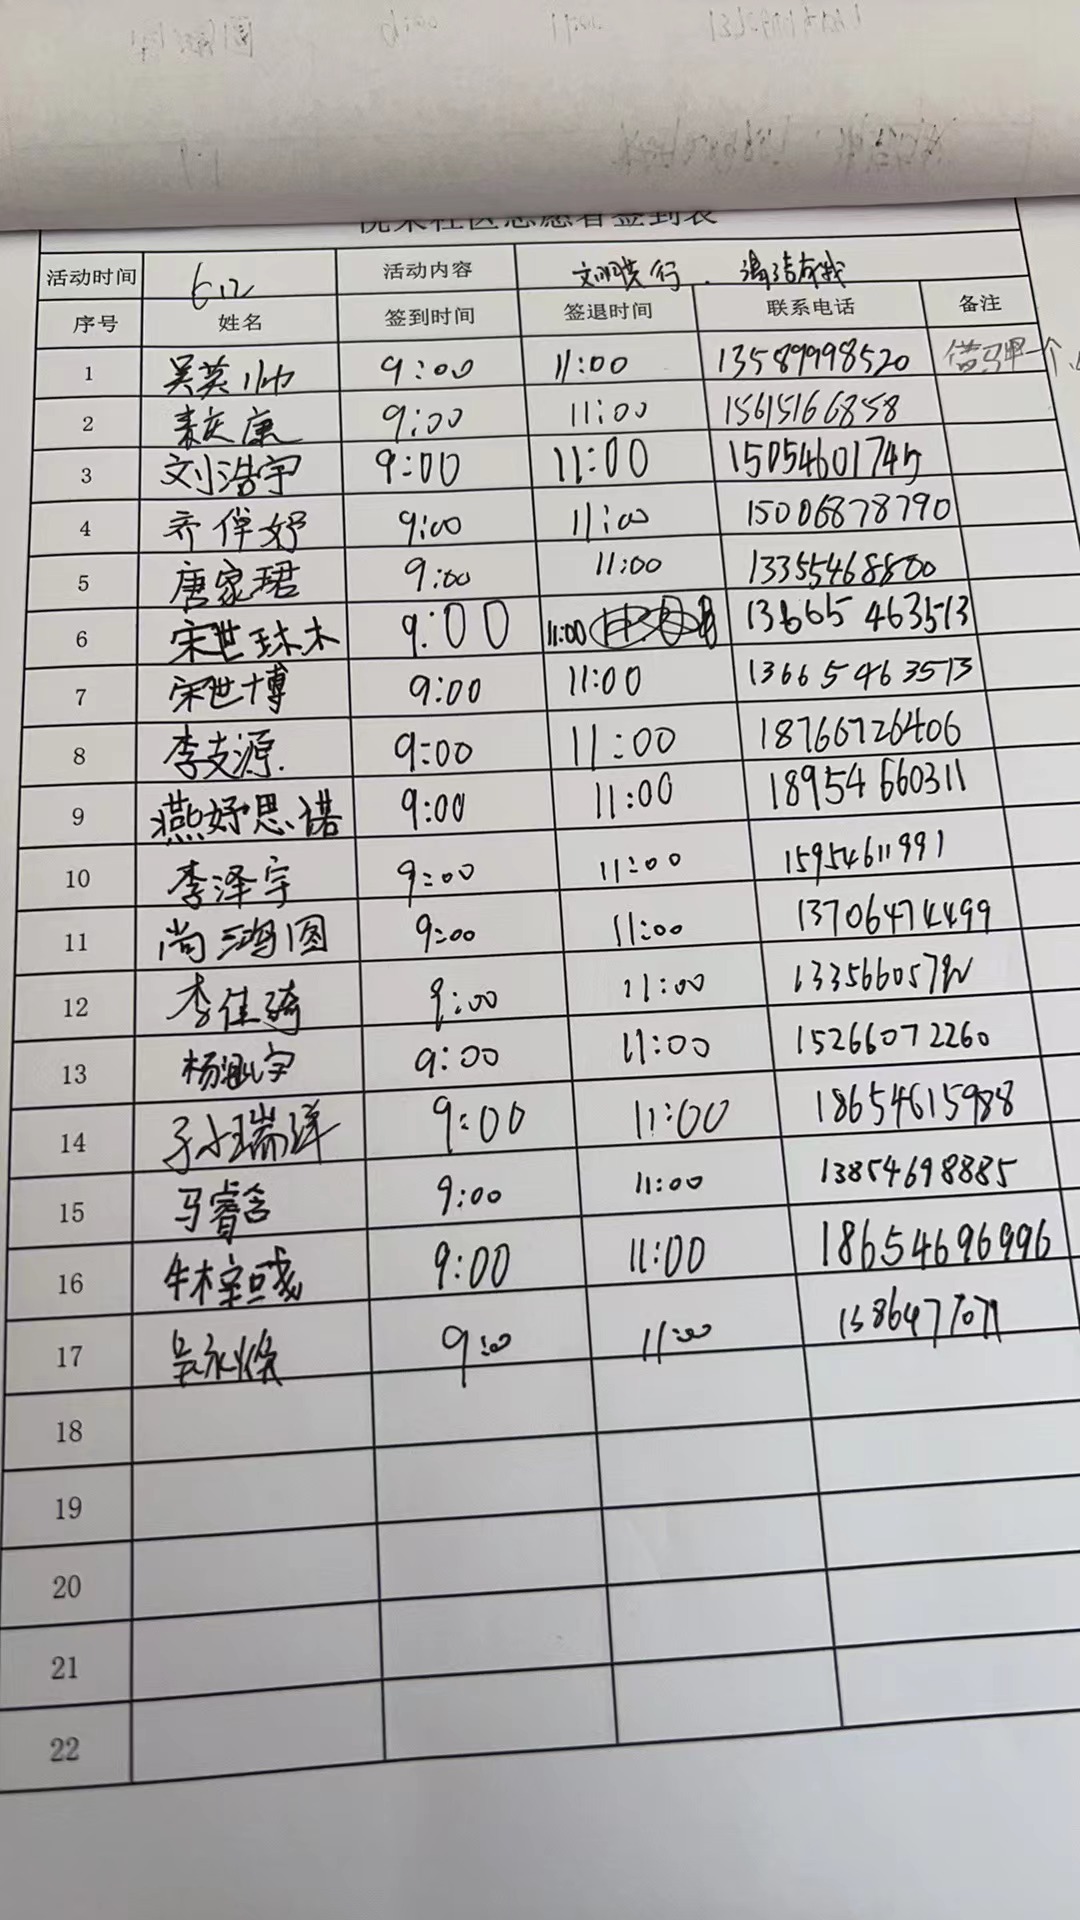 社区志愿者签到表
活动时间 6.12 活动内容 文明先行. 清洁有我
序号 姓名 签到时间 签退时间 联系电话 备注
1 吴英帅 9:00 11:00 13589998520 借马甲一个
2 康 9:00 11:00 15615166858
3 刘浩宇 9:00 11:00 15054601745
4 齐伴妤 9:00 11:00 15006878790
5 唐家珺 9:00 11:00 13355468800
6 宋世琳 9:00 11:00 13665463513
7 宋世博 9:00 11:00 13665463513
8 李支源 9:00 11:00 18766726406
9 燕妤思诺 9:00 11:00 18954660311
10 李泽宇 9:00 11:00 15954611991
11 尚鸿圆 9:00 11:00 13706474499
12 李佳琦 9:00 11:00
13 杨涵宇 9:00 11:00 15266072260
14 孙瑞洋 9:00 11:00 18654615988
15 马睿含 9:00 11:00 13854698885
16 9:00 11:00 18654696996
17 吴永焕 9:00 11:00
18
19
20
21
22